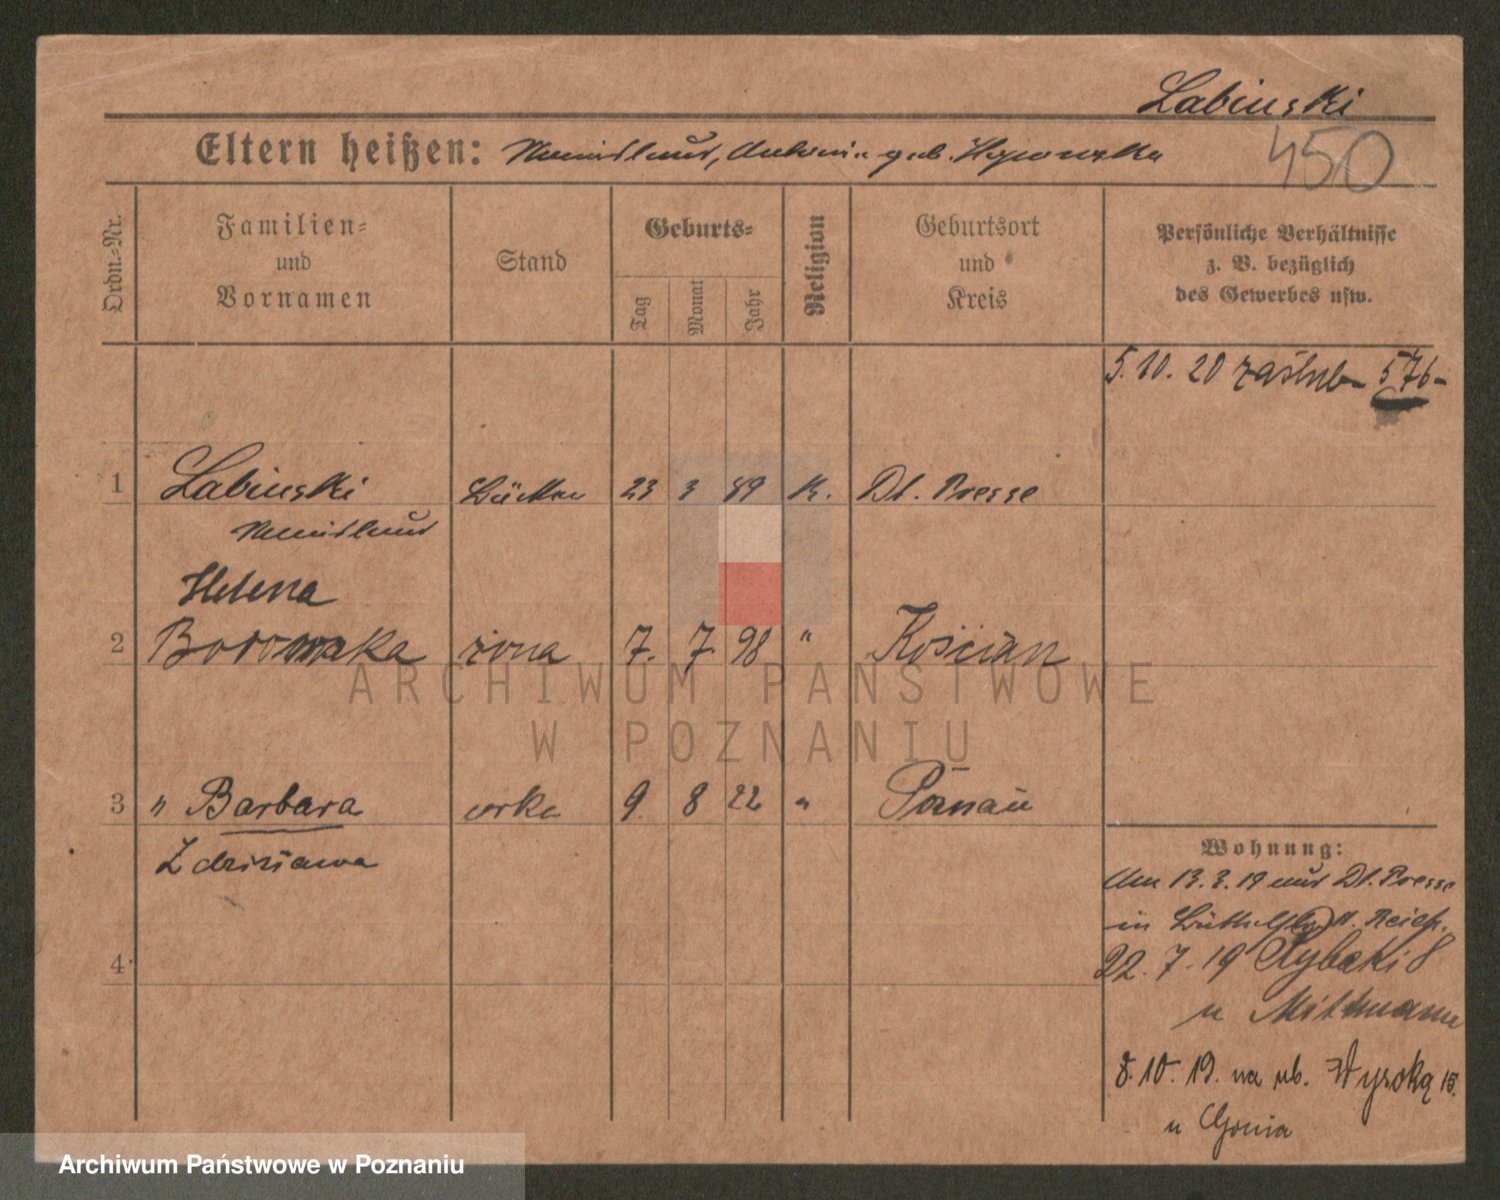 Labinski
450
Eltern heißen: geb.
Ordn.=Nr.
Familien=
und
Vornamen
Stand
Geburts=
Tag
Monat
Jahr
Religion
Geburtsort
und
Kreis
Persönliche Verhältnisse
z. B. bezüglich
des Gewerbes usw.
5. 10. 20 576-
1 Labinski 23 3 89 K. Dt. Presse
Helena
2 Borowska żona 7. 7. 98 " Kościan
3 " Barbara corka 9. 8 22 " Poznań
Zdzisława
4
Wohnung:
Am 13.3.19 aus Dt. Presse
in
22. 7. 19 Rybaki 8
u Mittmann
8. 10. 19. na ub. Wysoką 15.
u Gonia
ARCHIWUM PAŃSTWOWE
W POZNANIU
Archiwum Państwowe w Poznaniu